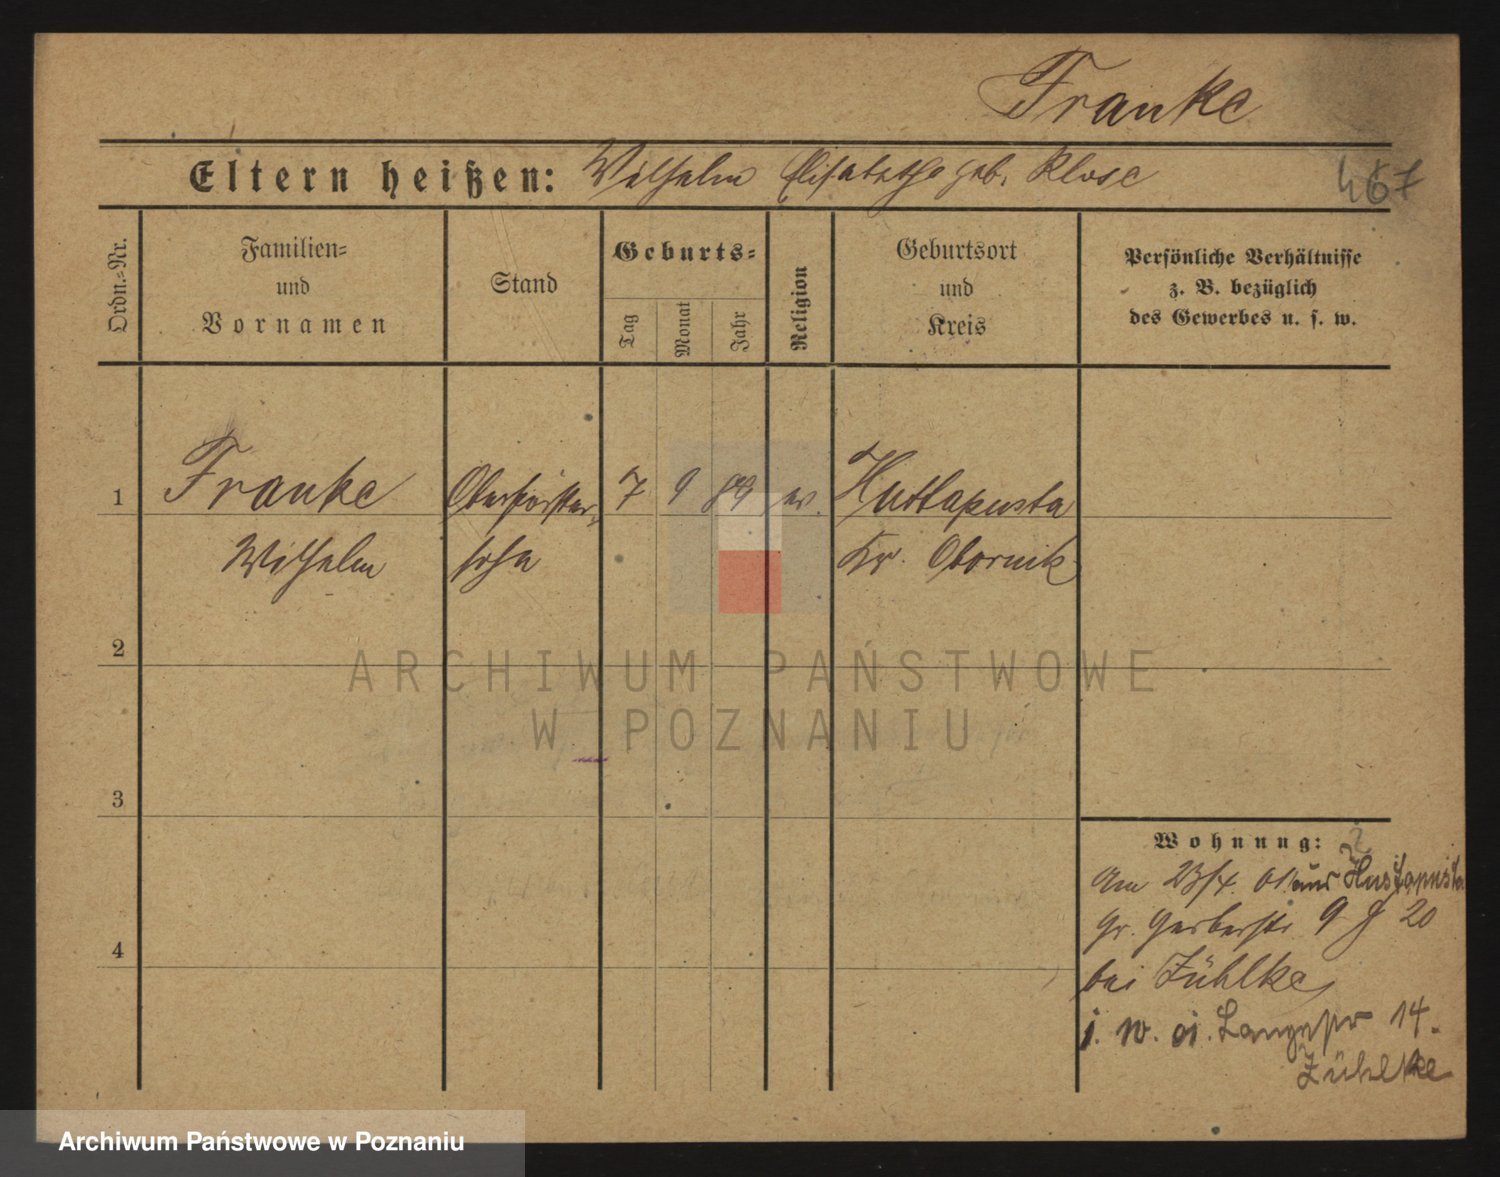 Franke
Eltern heißen: Wilhelm Elisabethe geb. Klose
467
Ordn.-Nr.
Familien-
und
Vornamen
Stand
Geburts-
Tag
Monat
Jahr
Religion
Geburtsort
und
Kreis
Persönliche Verhältnisse
z. B. bezüglich
des Gewerbes u. s. w.
1 Franke Oberförster- 7 9 ev. Huttapusta
Wilhelm sohn Kr. Obornik
2
ARCHIWUM PAŃSTWOWE
W POZNANIU
3
Wohnung:
Am aus Hustapusta
Gr. Gerberstr 9 20
bei Zühlke
j. w. Langestr 14.
Zühlke
4
Archiwum Państwowe w Poznaniu